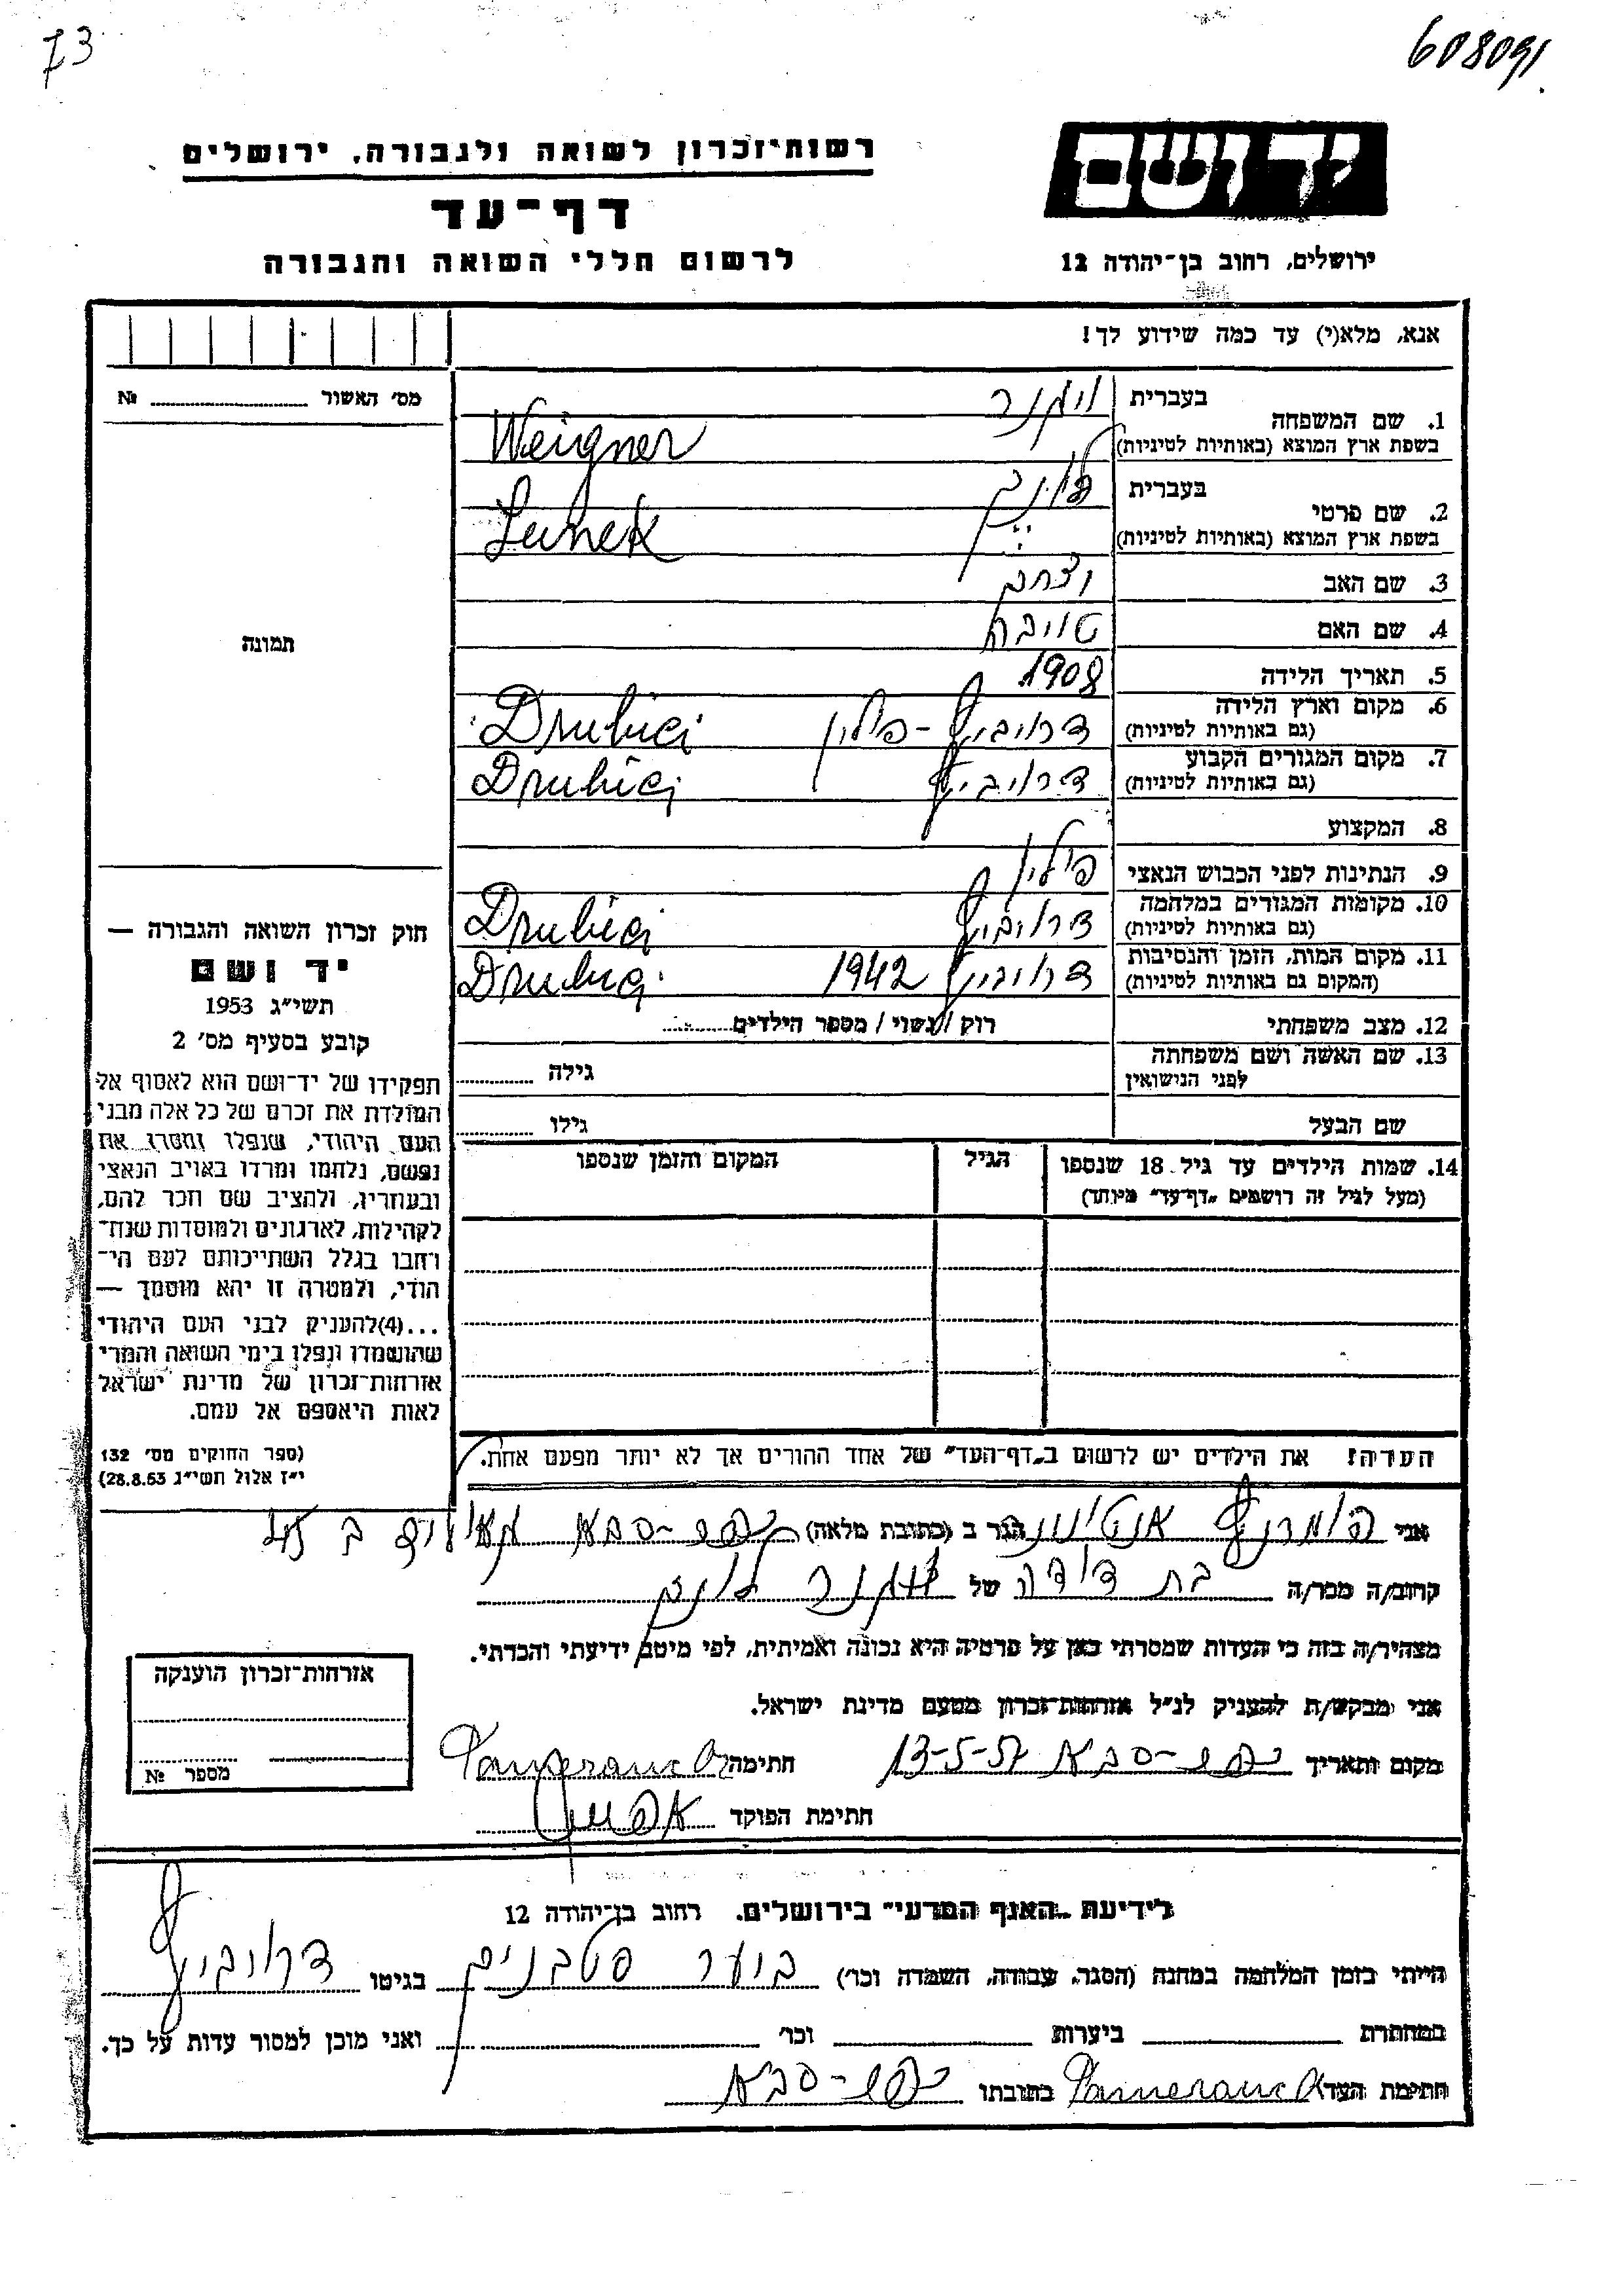 73
608091
יד ושם
רשות־זכרון לשואה ולגבורה, ירושלים
דף־עד
לרשום חללי השואה והגבורה
ירושלים, רחוב בן־יהודה 12
אנא, מלא(י) עד כמה שידוע לך!
מס׳ האשור № 
1. שם המשפחה
בעברית ויגנר
בשפת ארץ המוצא (באותיות לטיניות) Weigner
2. שם פרטי
בעברית לונק
בשפת ארץ המוצא (באותיות לטיניות) Lunek
3. שם האב יצחק
4. שם האם טויבה
5. תאריך הלידה 1908
6. מקום וארץ הלידה
(גם באותיות לטיניות) דרוביץ - פולין Drubici
7. מקום המגורים הקבוע
(גם באותיות לטיניות) דרוביץ Drubici
8. המקצוע
9. הנתינות לפני הכבוש הנאצי פולין
10. מקומות המגורים במלחמה
(גם באותיות לטיניות) דרוביץ Drubici
11. מקום המות, הזמן והנסיבות
(המקום גם באותיות לטיניות) דרוביץ 1942 Drubici
12. מצב משפחתי רוק / נשוי / מספר הילדים
13. שם האשה ושם משפחתה
לפני הנישואין גילה
שם הבעל גילו
14. שמות הילדים עד גיל 18 שנספו
(מעל לגיל זה רושמים „דף־עד״ מיוחד)
הגיל
המקום והזמן שנספו
תמונה
חוק זכרון השואה והגבורה —
יד ושם
תשי״ג 1953
קובע בסעיף מס׳ 2
תפקידו של יד־ושם הוא לאסוף אל
המולדת את זכרם של כל אלה מבני
העם היהודי, שנפלו ומסרו את
נפשם, נלחמו ומרדו באויב הנאצי
ובעוזריו, ולהציב שם וזכר להם,
לקהילות, לארגונים ולמוסדות שנח־
רחבו בגלל השתייכותם לעם הי־
הודי, ולמטרה זו יהא מוסמך —
...(4)להעניק לבני העם היהודי
שהושמדו ונפלו בימי השואה והמרי
אזרחות־זכרון של מדינת ישראל
לאות היאספם אל עמם.
(ספר החוקים מס׳ 132
י״ז אלול תשי״ג 28.8.53)
הערה: את הילדים יש לרשום ב„דף־העד״ של אחד ההורים אך לא יותר מפעם אחת.
אני פומרנץ הגר ב (כתובת מלאה) כפר-סבא
קרוב/ה מכר/ה בת דודה של ויגנר לונק
מצהיר/ה בזה כי העדות שמסרתי כאן על פרטיה היא נכונה ואמיתית, לפי מיטב ידיעתי והכרתי.
אני מבקש/ת להעניק לנ״ל אזרחות־זכרון מטעם מדינת ישראל.
מקום ותאריך כפר-סבא 13-5-57 חתימה Pomeranc
חתימת הפוקד
אזרחות־זכרון הוענקה
מספר №
לידיעת „האגף המדעי״ בירושלים, רחוב בן־יהודה 12
הייתי בזמן המלחמה במחנה (הסגר, עבודה, השמדה וכו׳) בגיטו דרוביץ
במחתרת ביערות וכו׳ ואני מוכן למסור עדות על כך.
חתימת העד Pomeranc כתובתו כפר-סבא